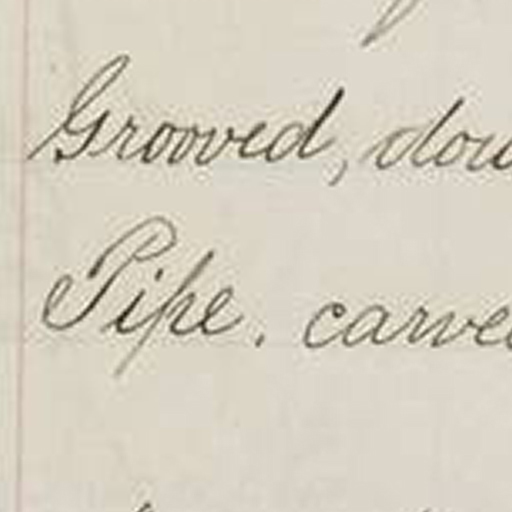 Grooved, dou
Pipe. carved